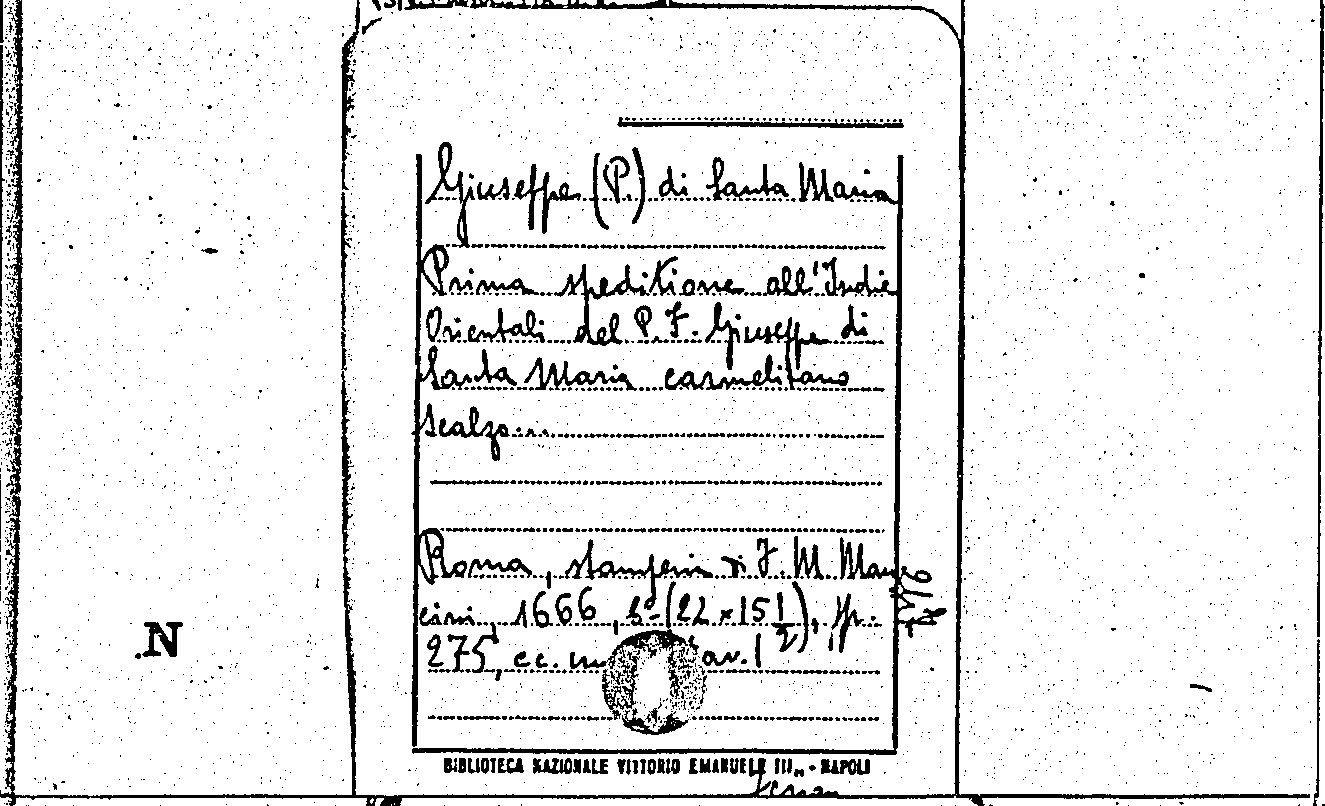 Giuseppe (P.) di Santa Maria
Prima speditione all'Indie
Orientali del P. F. Giuseppe di
Santa Maria carmelitano
scalzo...
Roma, stamperia di F. M. Man
cini, 1666, 8º (22 × 15 1/2), pp.
275, cc. av. 1
N
BIBLIOTECA NAZIONALE VITTORIO EMANUELE III - NAPOLI